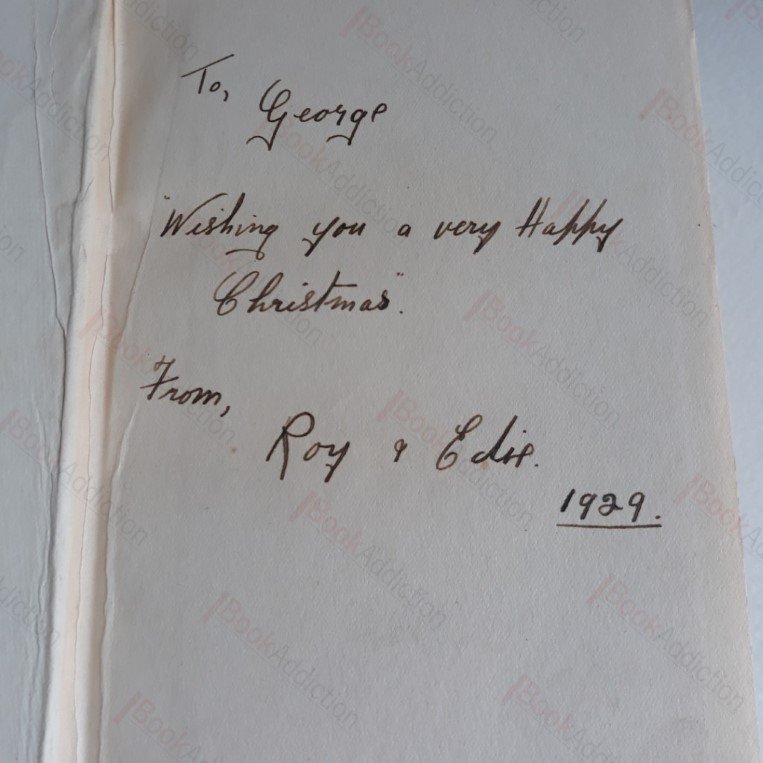 To,
George
"Wishing you a very Happy
Christmas".
From,
Roy & Edie.
1929.